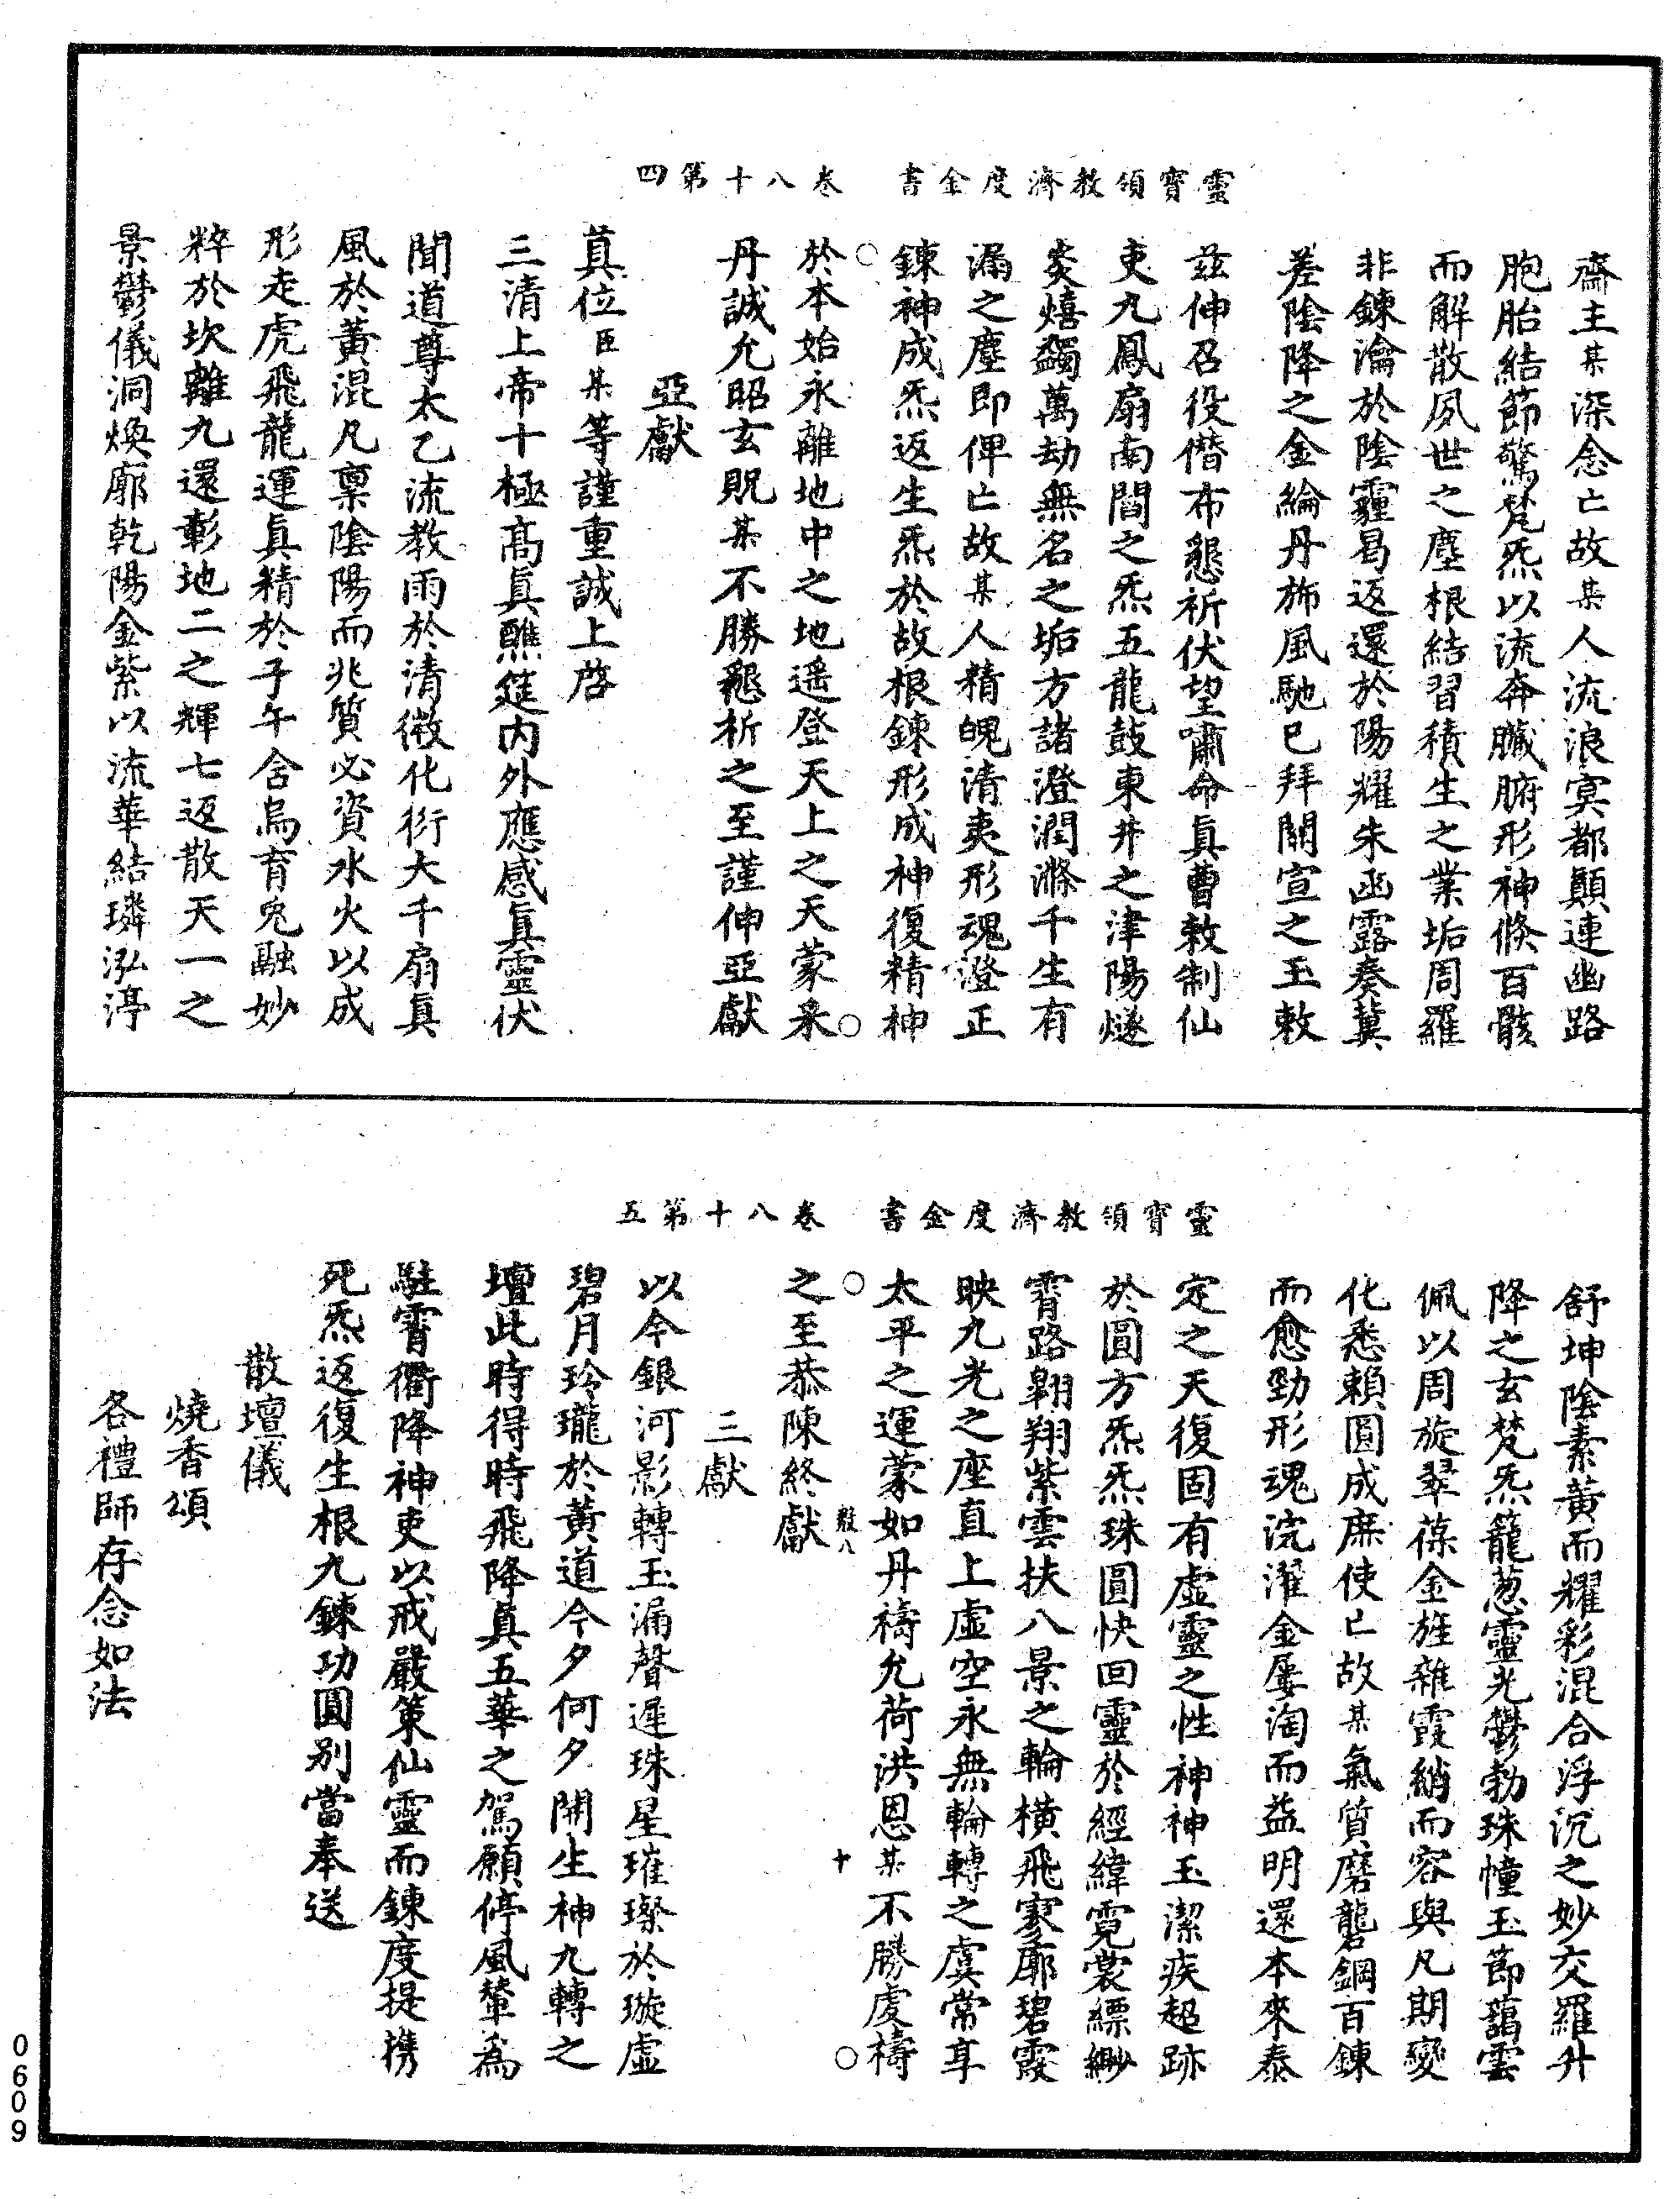 靈寶領教濟度金書　卷八十第四
齋主某深念亡故某人流浪冥都顛連幽路
胞胎結節驚梵炁以流奔臟腑形神倏百骸
而解散夙世之塵根結習積生之業垢周羅
非鍊瀹於陰霾曷返還於陽耀朱函露奏冀
差陰降之金綸丹斾風馳已拜關宣之玉敕
茲伸召役僭布懇祈伏望嘯命真曹敕制仙
吏九鳳扇南閶之炁五龍鼓東井之津陽燧
炎熺蠲萬劫無名之垢方諸澄潤滌千生有
漏之塵即俾亡故某人精魄清夷形魂澄正
鍊神成炁返生炁於故根鍊形成神復精神
於本始永離地中之地遥登天上之天蒙采
丹誠允昭玄貺某不勝懇祈之至謹伸亞獻
亞獻
真位臣某等謹重誠上啓
三清上帝十極高真醮筵内外應感真靈伏
聞道尊太乙流教雨於清微化衍大千扇真
風於黃混凡稟陰陽而兆質必資水火以成
形走虎飛龍運真精於子午含烏育兔融妙
粹於坎離九還彰地二之輝七返散天一之
景鬱儀洞煥廓乾陽金紫以流華結璘泓渟
靈寶領教濟度金書　卷八十第五
舒坤陰素黃而耀彩混合浮沉之妙交羅升
降之玄梵炁籠葱靈光鬱勃珠幢玉節藹雲
佩以周旋翠葆金旌雜霞綃而容與凡期變
化悉賴圓成庶使亡故某氣質磨礱鋼百鍊
而愈勁形魂浣濯金屢淘而益明還本來泰
定之天復固有虛靈之性神神玉潔疾超跡
於圓方炁炁珠圓快回靈於經緯霓裳縹緲
霄路翱翔紫雲扶八景之輪橫飛寥廓碧霞
映九光之座直上虛空永無輪轉之虞常享
太平之運蒙如丹禱允荷洪恩某不勝虔禱
之至恭陳終獻
三獻
以今銀河影轉玉漏聲遲珠星璀璨於璇虛
碧月玲瓏於黃道今夕何夕開生神九轉之
壇此時得時飛降真五華之駕願停風輦為
駐霄衢降神吏以戒嚴策仙靈而鍊度提携
死炁返復生根九鍊功圓别當奉送
散壇儀
燒香頌
各禮師存念如法
0609